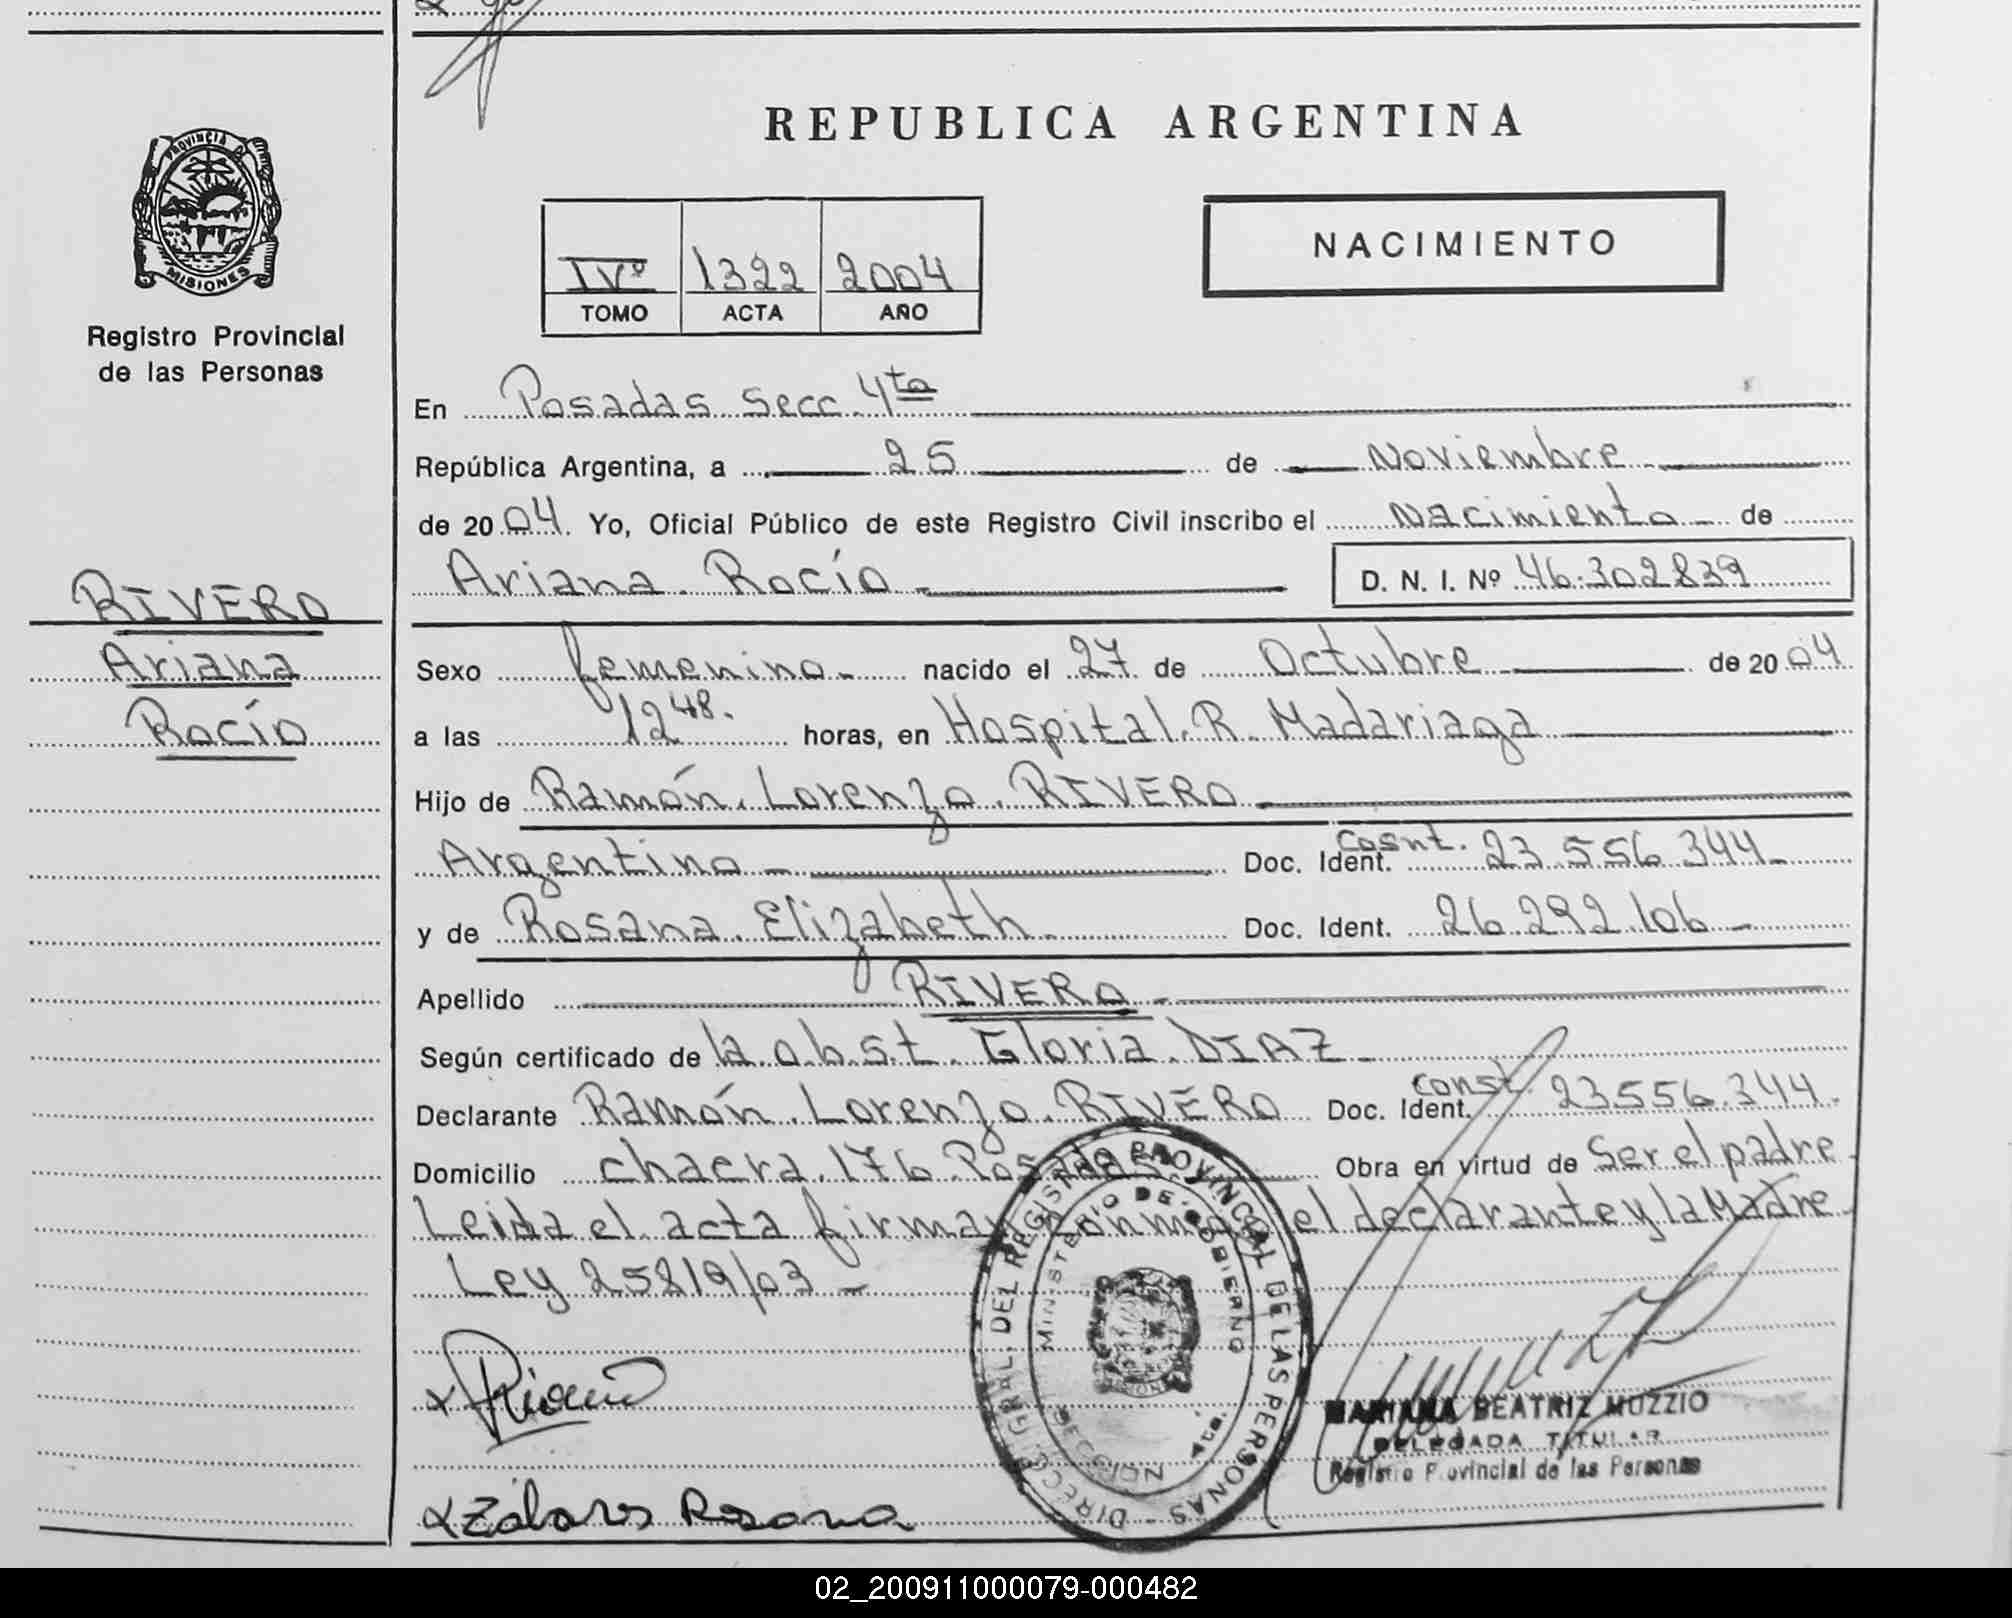 PROVINCIA DE
MISIONES
Registro Provincial
de las Personas
RIVERO
Ariana
Rocío
REPUBLICA ARGENTINA
IVº 1322 2004
TOMO ACTA AÑO
NACIMIENTO
En Posadas Secc. 4ta
República Argentina, a 25 de Noviembre
de 2004. Yo, Oficial Público de este Registro Civil inscribo el Nacimiento de
Ariana Rocío D. N. I. Nº 46.302839
Sexo femenino nacido el 27 de Octubre de 2004
a las 12 48. horas, en Hospital R. Madariaga
Hijo de Ramón Lorenzo RIVERO
Argentino Doc. Ident. Cosnt. 23 556 344
y de Rosana Elizabeth Doc. Ident. 26.292.106
Apellido RIVERO
Según certificado de la obst. Gloria DIAZ
Declarante Ramón Lorenzo RIVERO Doc. Ident. const. 23556.344.
Domicilio chacra 176 Posadas Obra en virtud de Ser el padre
Leida el acta firman el declarante y la Madre
Ley 25819/03
DIRECC. GRAL. DEL REGISTRO PROVINCIAL DE LAS PERSONAS
MINISTERIO DE GOBIERNO
SECCION 4ta.
MARIANA BEATRIZ MUZZIO
DELEGADA TITULAR
Registro Provincial de las Personas
Rosana
02_200911000079-000482